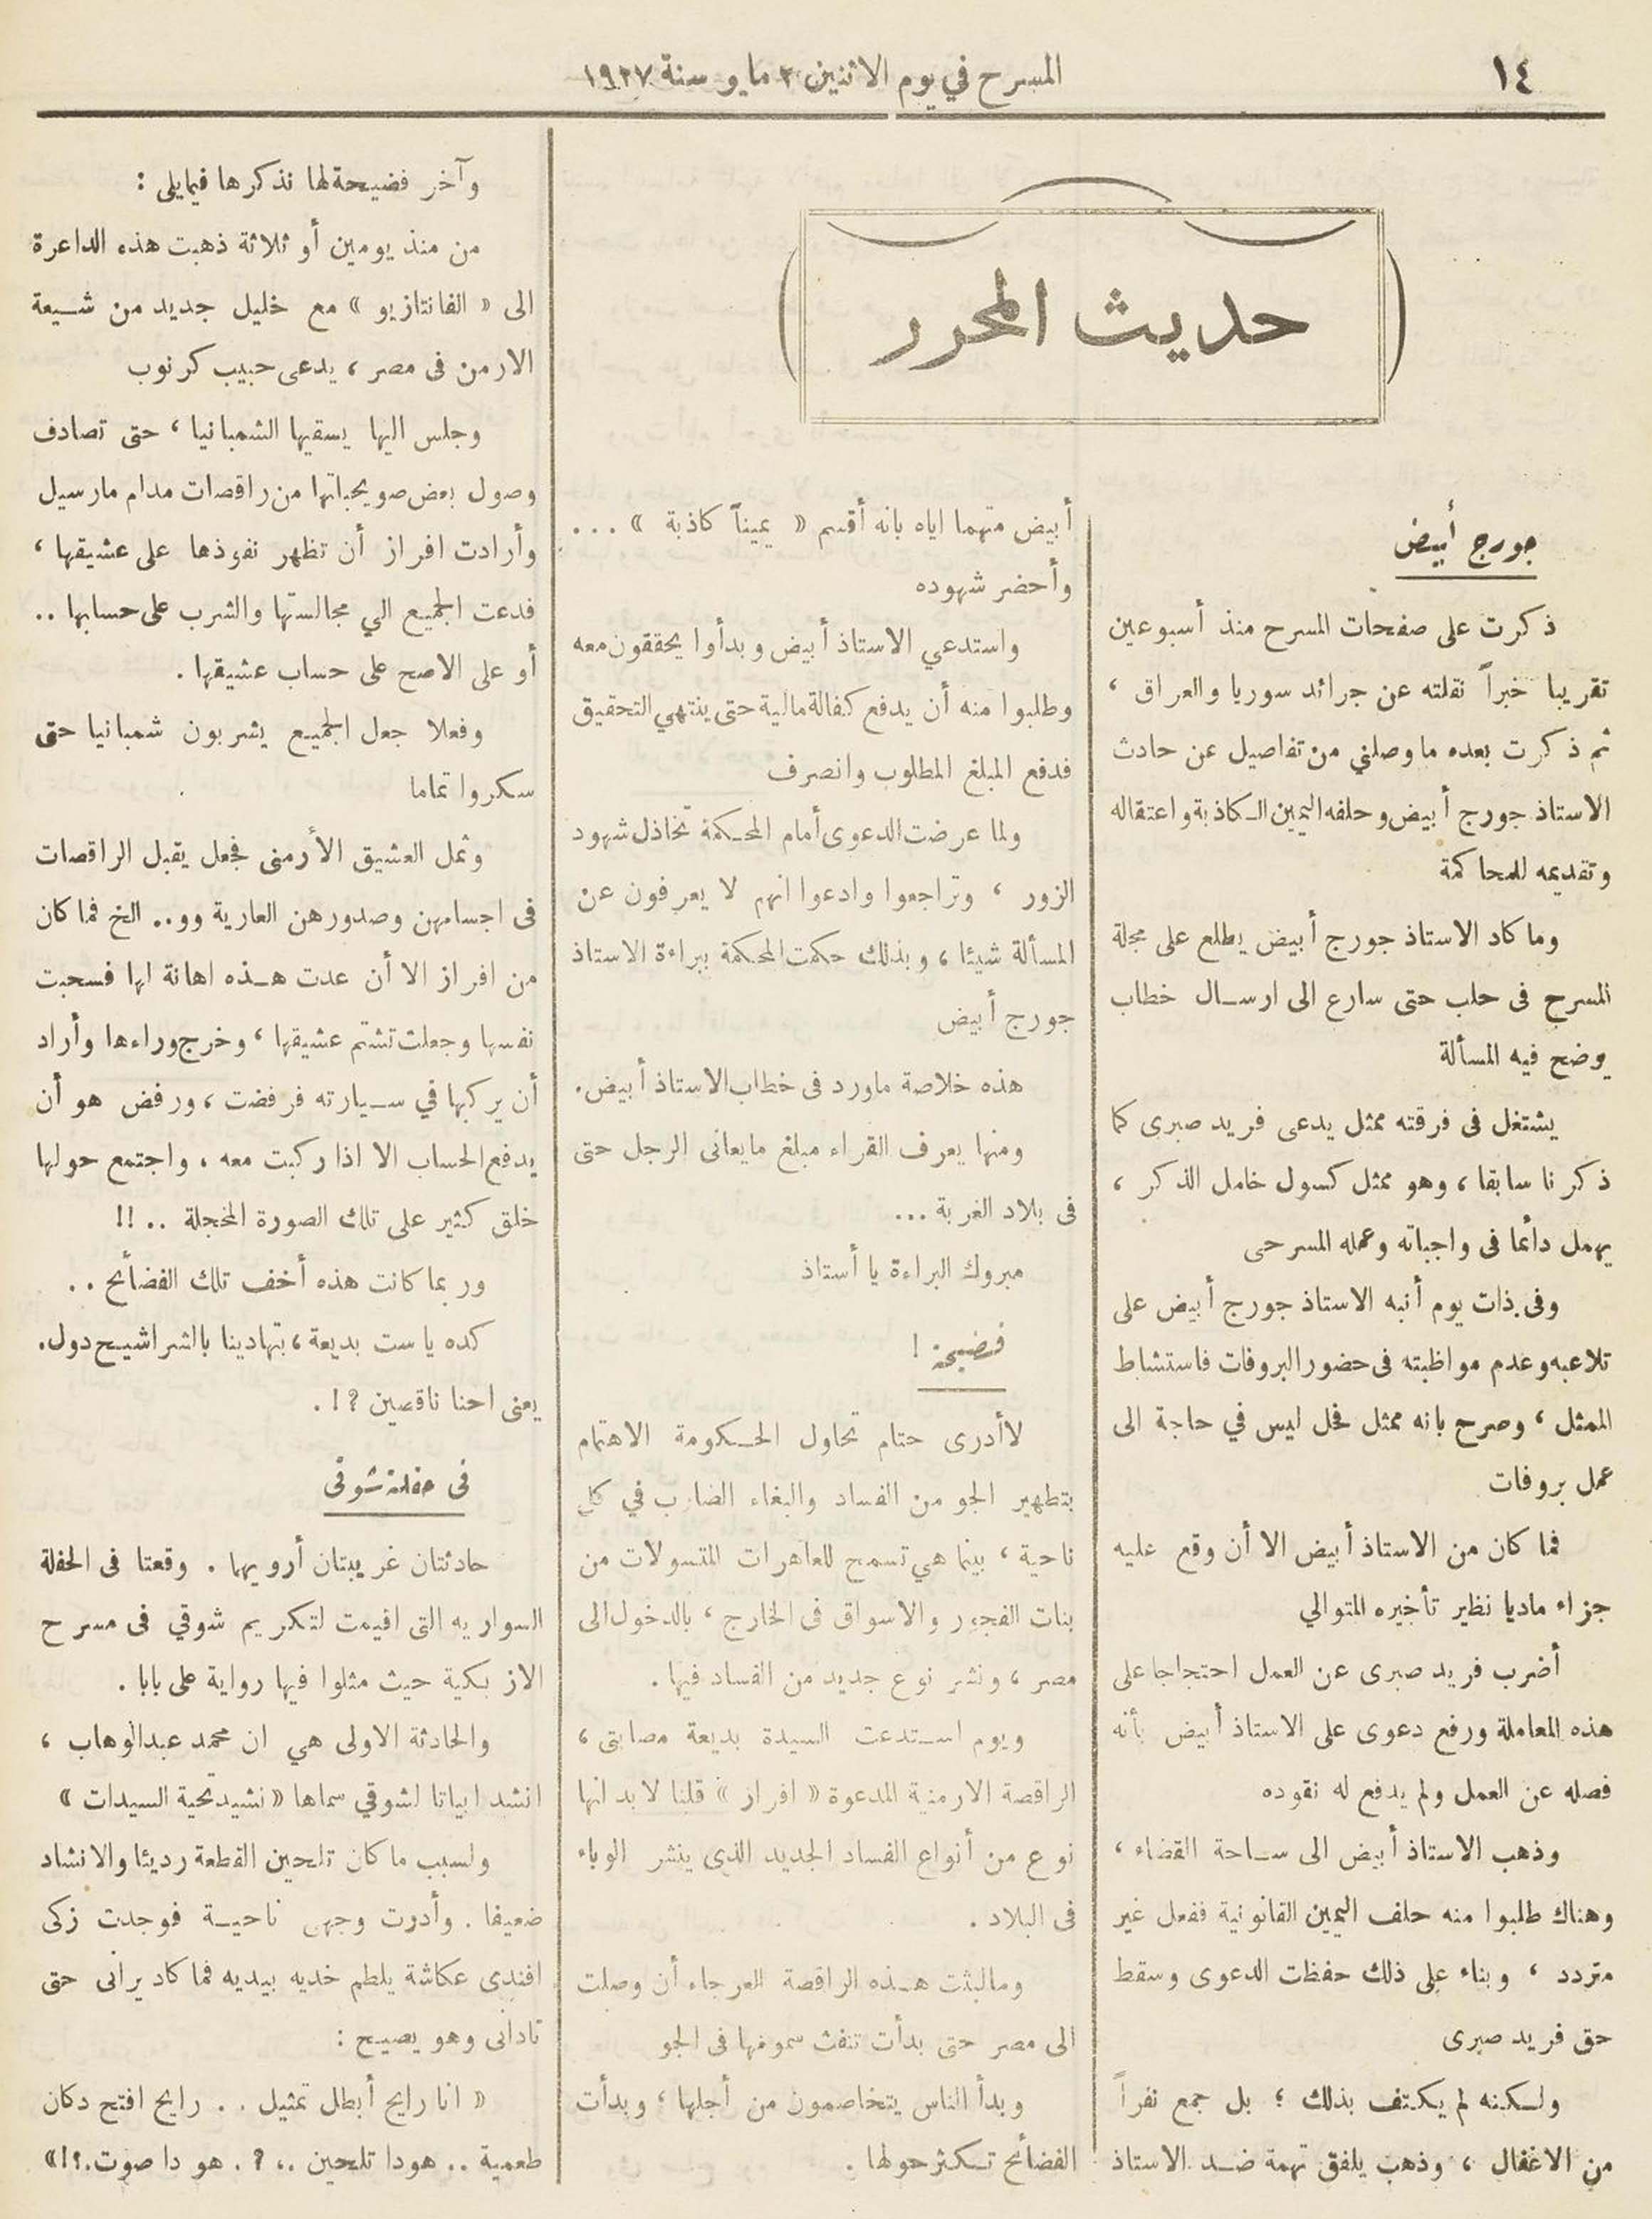 ١٤
المسرح في يوم الاثنين ٢ مايو سنة ١٩٢٧
حديث المحرر
جورج أبيض
ذكرت على صفحات المسرح منذ أسبوعين
تقريبا خبراً نقلته عن جرائد سوريا والعراق ،
ثم ذكرت بعده ما وصلني من تفاصيل عن حادث
الاستاذ جورج أبيض وحلفه اليمين الكاذبة واعتقاله
وتقديمه للمحاكمة
وما كاد الاستاذ جورج أبيض يطلع على مجلة
المسرح فى حلب حتى سارع الى ارسال خطاب
يوضح فيه المسألة
يشتغل فى فرقته ممثل يدعى فريد صبرى كما
ذكرنا سابقا ، وهو ممثل كسول خامل الذكر ،
يهمل دائما فى واجباته وعمله المسرحى
وفى ذات يوم أنبه الاستاذ جورج أبيض على
تلاعبه وعدم مواظبته فى حضور البروفات فاستشاط
الممثل ، وصرح بانه ممثل فحل ليس في حاجة الى
عمل بروفات
فما كان من الاستاذ أبيض الا أن وقع عليه
جزاء ماديا نظير تأخيره المتوالي
أضرب فريد صبرى عن العمل احتجاجا على
هذه المعاملة ورفع دعوى على الاستاذ أبيض بأنه
فصله عن العمل ولم يدفع له نقوده
وذهب الاستاذ أبيض الى ساحة القضاء ،
وهناك طلبوا منه حلف اليمين القانونية ففعل غير
متردد ، وبناء على ذلك حفظت الدعوى وسقط
حق فريد صبرى
ولكنه لم يكتف بذلك ؛ بل جمع نفراً
من الاغفال ، وذهب يلفق تهمة ضد الاستاذ
أبيض متهما اياه بانه أقسم « يميناً كاذبة » ...
وأحضر شهوده
واستدعي الاستاذ أبيض وبدأوا يحققون معه
وطلبوا منه أن يدفع كفالة مالية حتى ينتهي التحقيق
فدفع المبلغ المطلوب وانصرف
ولما عرضت الدعوى أمام المحكمة تخاذل شهود
الزور ، وتراجعوا وادعوا انهم لا يعرفون عن
المسألة شيئا ، وبذلك حكمت المحكمة ببراءة الاستاذ
جورج أبيض
هذه خلاصة ماورد فى خطاب الاستاذ أبيض .
ومنها يعرف القراء مبلغ مايعانى الرجل حتى
فى بلاد الغربة ...
مبروك البراءة يا أستاذ
فضيحة !
لاأدرى حتام تحاول الحكومة الاهتمام
بتطهير الجو من الفساد والبغاء الضارب في كل
ناحية ، بينما هي تسمح للعاهرات المتسولات من
بنات الفجور والاسواق فى الخارج ، بالدخول الى
مصر ، ونشر نوع جديد من الفساد فيها .
ويوم استدعت السيدة بديعة مصابنى ،
الراقصة الارمنية المدعوة « افراز » قلنا لا بد انها
نوع من أنواع الفساد الجديد الذى ينشر الوباء
فى البلاد .
ومالبثت هذه الراقصة العرجاء أن وصلت
الى مصر حتى بدأت تنفث سمومها فى الجو
وبدأ الناس يتخاصمون من أجلها ، وبدأت
الفضائح تكثر حولها .
وآخر فضيحة لها نذكرها فيمايلى :
من منذ يومين أو ثلاثة ذهبت هذه الداعرة
الى « الفانتازيو » مع خليل جديد من شيعة
الارمن فى مصر ، يدعى حبيب كرنوب
وجلس اليها يسقيها الشمبانيا ، حتى تصادف
وصول بعض صويحباتها من راقصات مدام مارسيل
وأرادت افراز أن تظهر نفوذها على عشيقها ،
فدعت الجميع الي مجالستها والشرب على حسابها ..
أو على الاصح على حساب عشيقها .
وفعلا جعل الجميع يشربون شمبانيا حتى
سكروا تماما
وثمل العشيق الأرمنى فجعل يقبل الراقصات
فى اجسامهن وصدورهن العارية وو.. الخ فما كان
من افراز الا أن عدت هذه اهانة لها فسحبت
نفسها وجعلت تشتم عشيقها ، وخرج وراءها وأراد
أن يركبها في سيارته فرفضت ، ورفض هو أن
يدفع الحساب الا اذا ركبت معه ، واجتمع حولها
خلق كثير على تلك الصورة المخجلة .. !!
وربما كانت هذه أخف تلك الفضائح ..
كده ياست بديعة ، بتهادينا بالشراشيح دول .
يعنى احنا ناقصين ؟! .
فى حفلة شوقى
حادثتان غريبتان أرويهما . وقعتا فى الحفلة
السواريه التى اقيمت لتكريم شوقي فى مسرح
الازبكية حيث مثلوا فيها رواية على بابا .
والحادثة الاولى هي ان محمد عبدالوهاب ،
انشد ابياتا لشوقي سماها « نشيد تحية السيدات »
ولسبب ما كان تلحين القطعة رديئا والانشاد
ضعيفا . وأدرت وجهى ناحية فوجدت زكى
افندى عكاشة يلطم خديه بيديه فما كاد يرانى حتى
نادانى وهو يصيح :
« انا رايح أبطل تمثيل .. رايح افتح دكان
طعمية .. هودا تلحين .. ؟ . هو دا صوت .؟!»